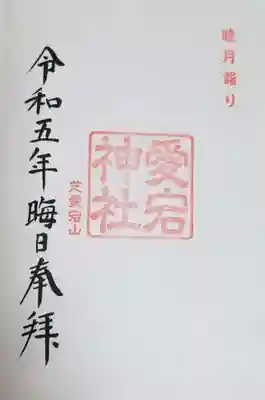 睦月詣り
愛宕
神社
芝愛宕山
令和五年晦日奉拜